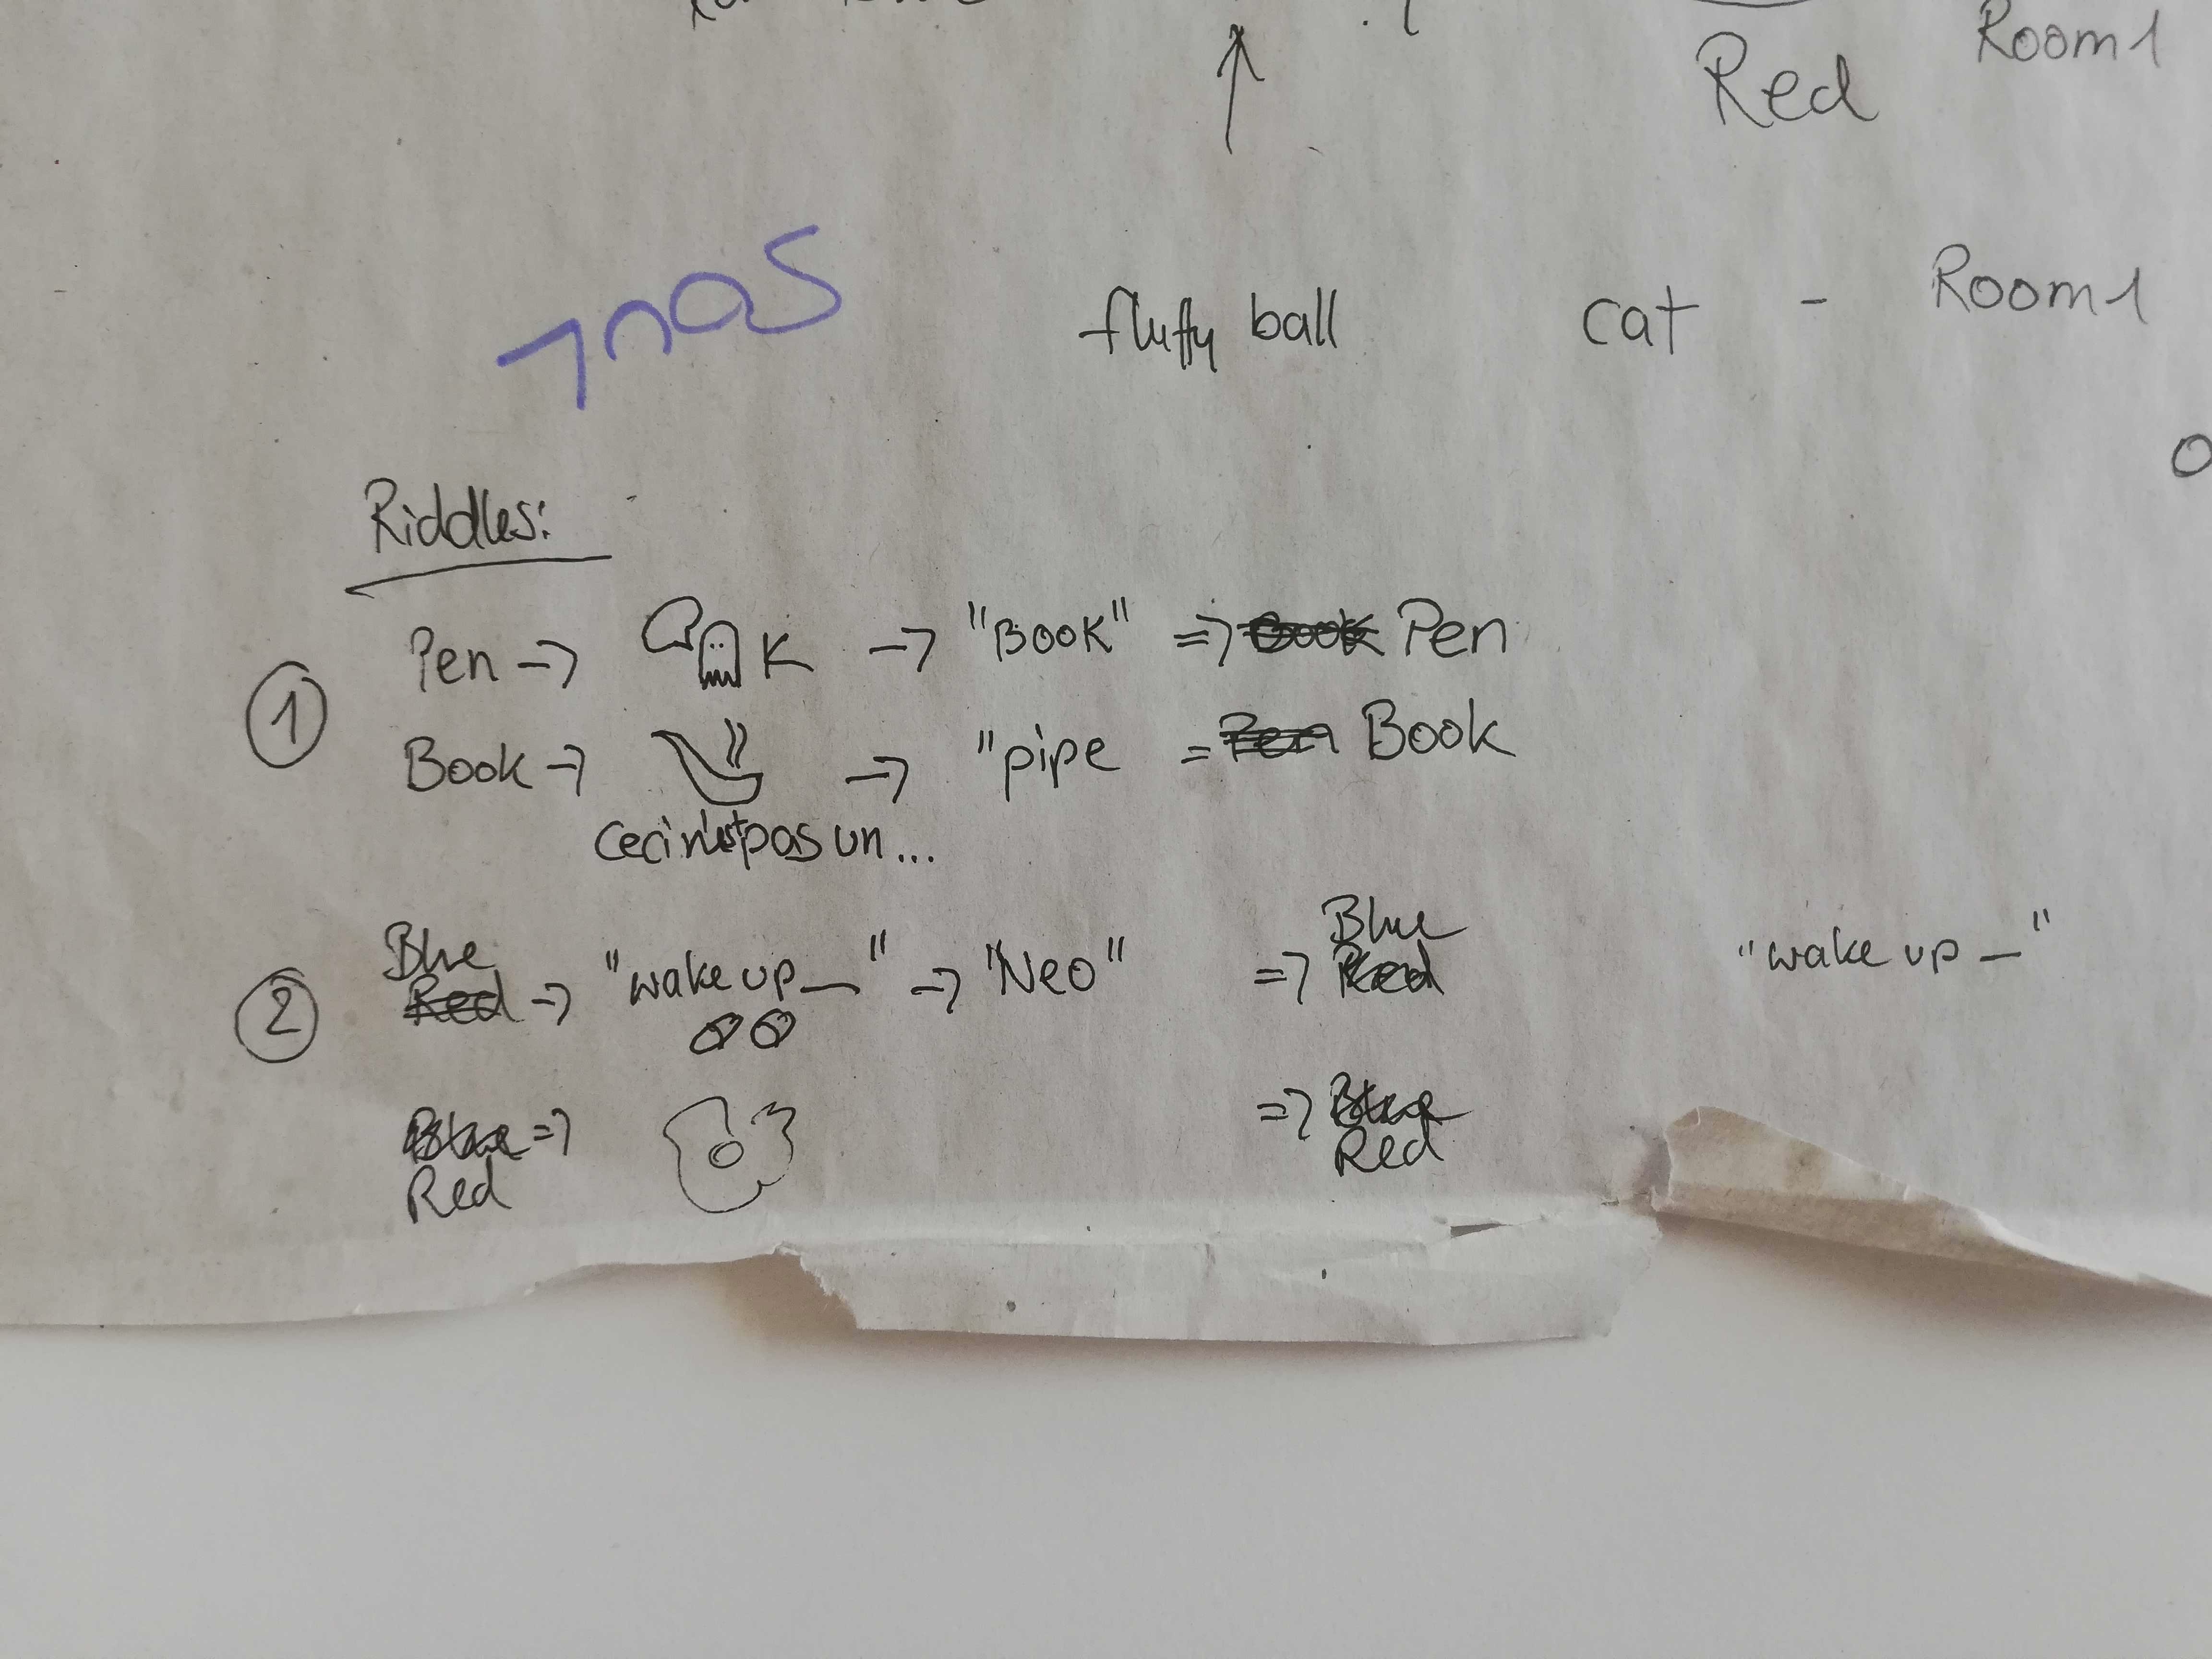 Red
Room 1
1nas
fluffy ball cat - Room 1
Riddles:
① Pen -> K -> "BOOK" => Book Pen
Book -> -> "pipe = Pen Book
Ceci n'est pas un...
② Blue Red -> "wake up _" -> "Neo" => Blue Red "wake up _"
Blue => => Blue
Red Red